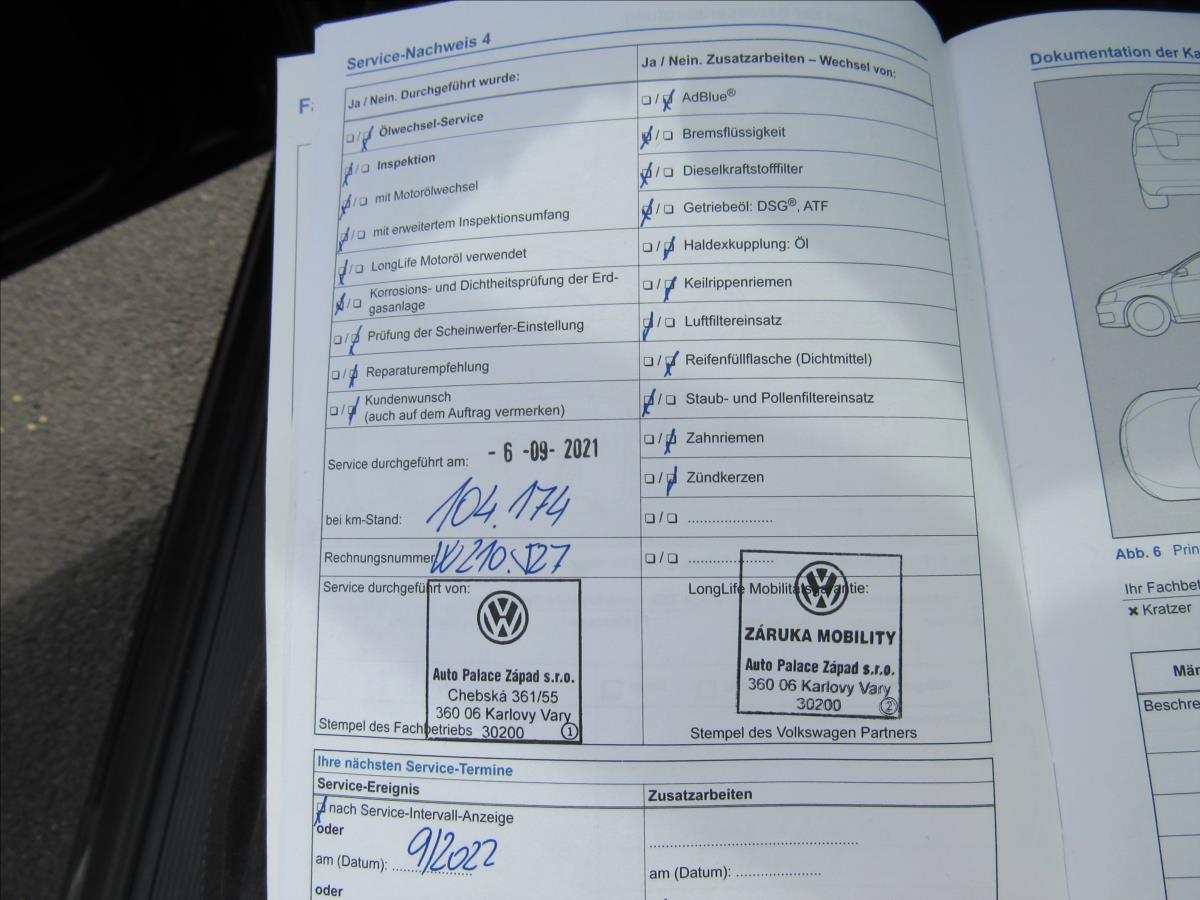 Service-Nachweis 4
Ja / Nein. Durchgeführt wurde:
Ölwechsel-Service
Inspektion
mit Motorölwechsel
mit erweitertem Inspektionsumfang
LongLife Motoröl verwendet
Korrosions- und Dichtheitsprüfung der Erd-
gasanlage
Prüfung der Scheinwerfer-Einstellung
Reparaturempfehlung
Kundenwunsch
(auch auf dem Auftrag vermerken)
Service durchgeführt am: - 6 -09- 2021
bei km-Stand: 104.174
Rechnungsnummer
Service durchgeführt von:
Auto Palace Západ s.r.o.
Chebská 361/55
360 06 Karlovy Vary
30200 1
Stempel des Fachbetriebs
Ja / Nein. Zusatzarbeiten – Wechsel von:
AdBlue®
Bremsflüssigkeit
Dieselkraftstofffilter
Getriebeöl: DSG®, ATF
Haldexkupplung: Öl
Keilrippenriemen
Luftfiltereinsatz
Reifenfüllflasche (Dichtmittel)
Staub- und Pollenfiltereinsatz
Zahnriemen
Zündkerzen
LongLife Mobilitätsgarantie:
ZÁRUKA MOBILITY
Auto Palace Západ s.r.o.
360 06 Karlovy Vary
30200 2
Stempel des Volkswagen Partners
Ihre nächsten Service-Termine
Service-Ereignis
nach Service-Intervall-Anzeige
oder
am (Datum): 9/2022
oder
Zusatzarbeiten
am (Datum):
Dokumentation der Ka
Abb. 6 Prin
Ihr Fachbet
Kratzer
Män
Beschre